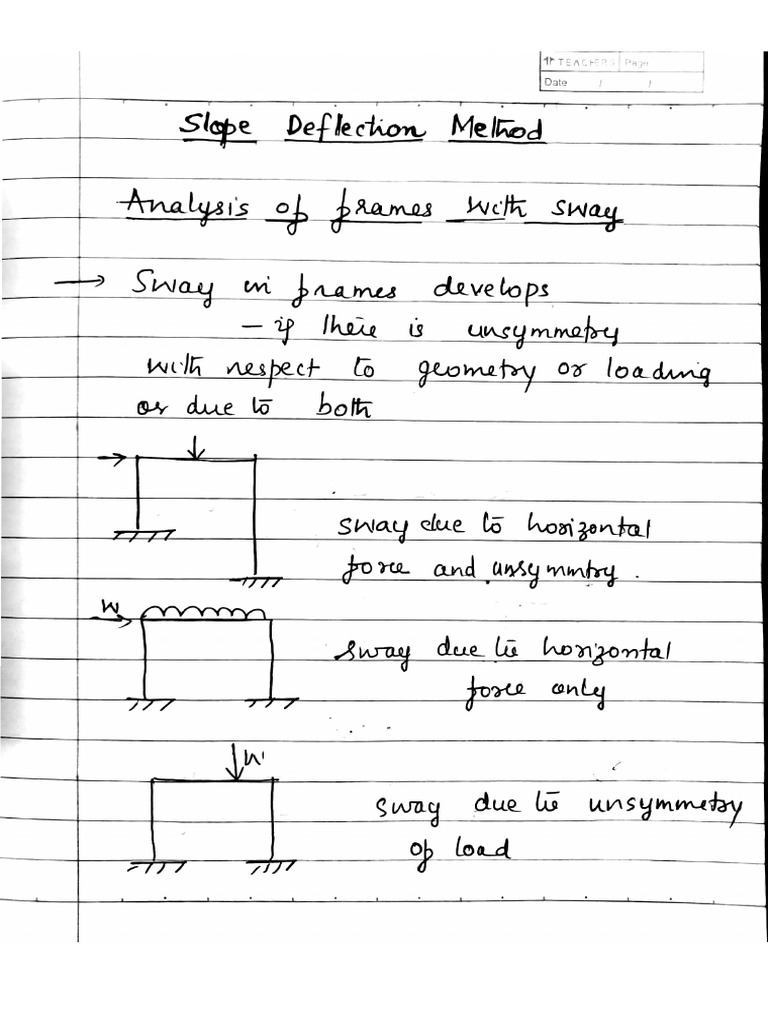 TEACHERS Page
Date / /
Slope Deflection Method
Analysis of frames with sway
→ Sway in frames develops
– if there is unsymmetry
with respect to geometry or loading
or due to both
sway due to horizontal
force and unsymmtry.
W
sway due to horizontal
force only
W
sway due to unsymmetry
of load